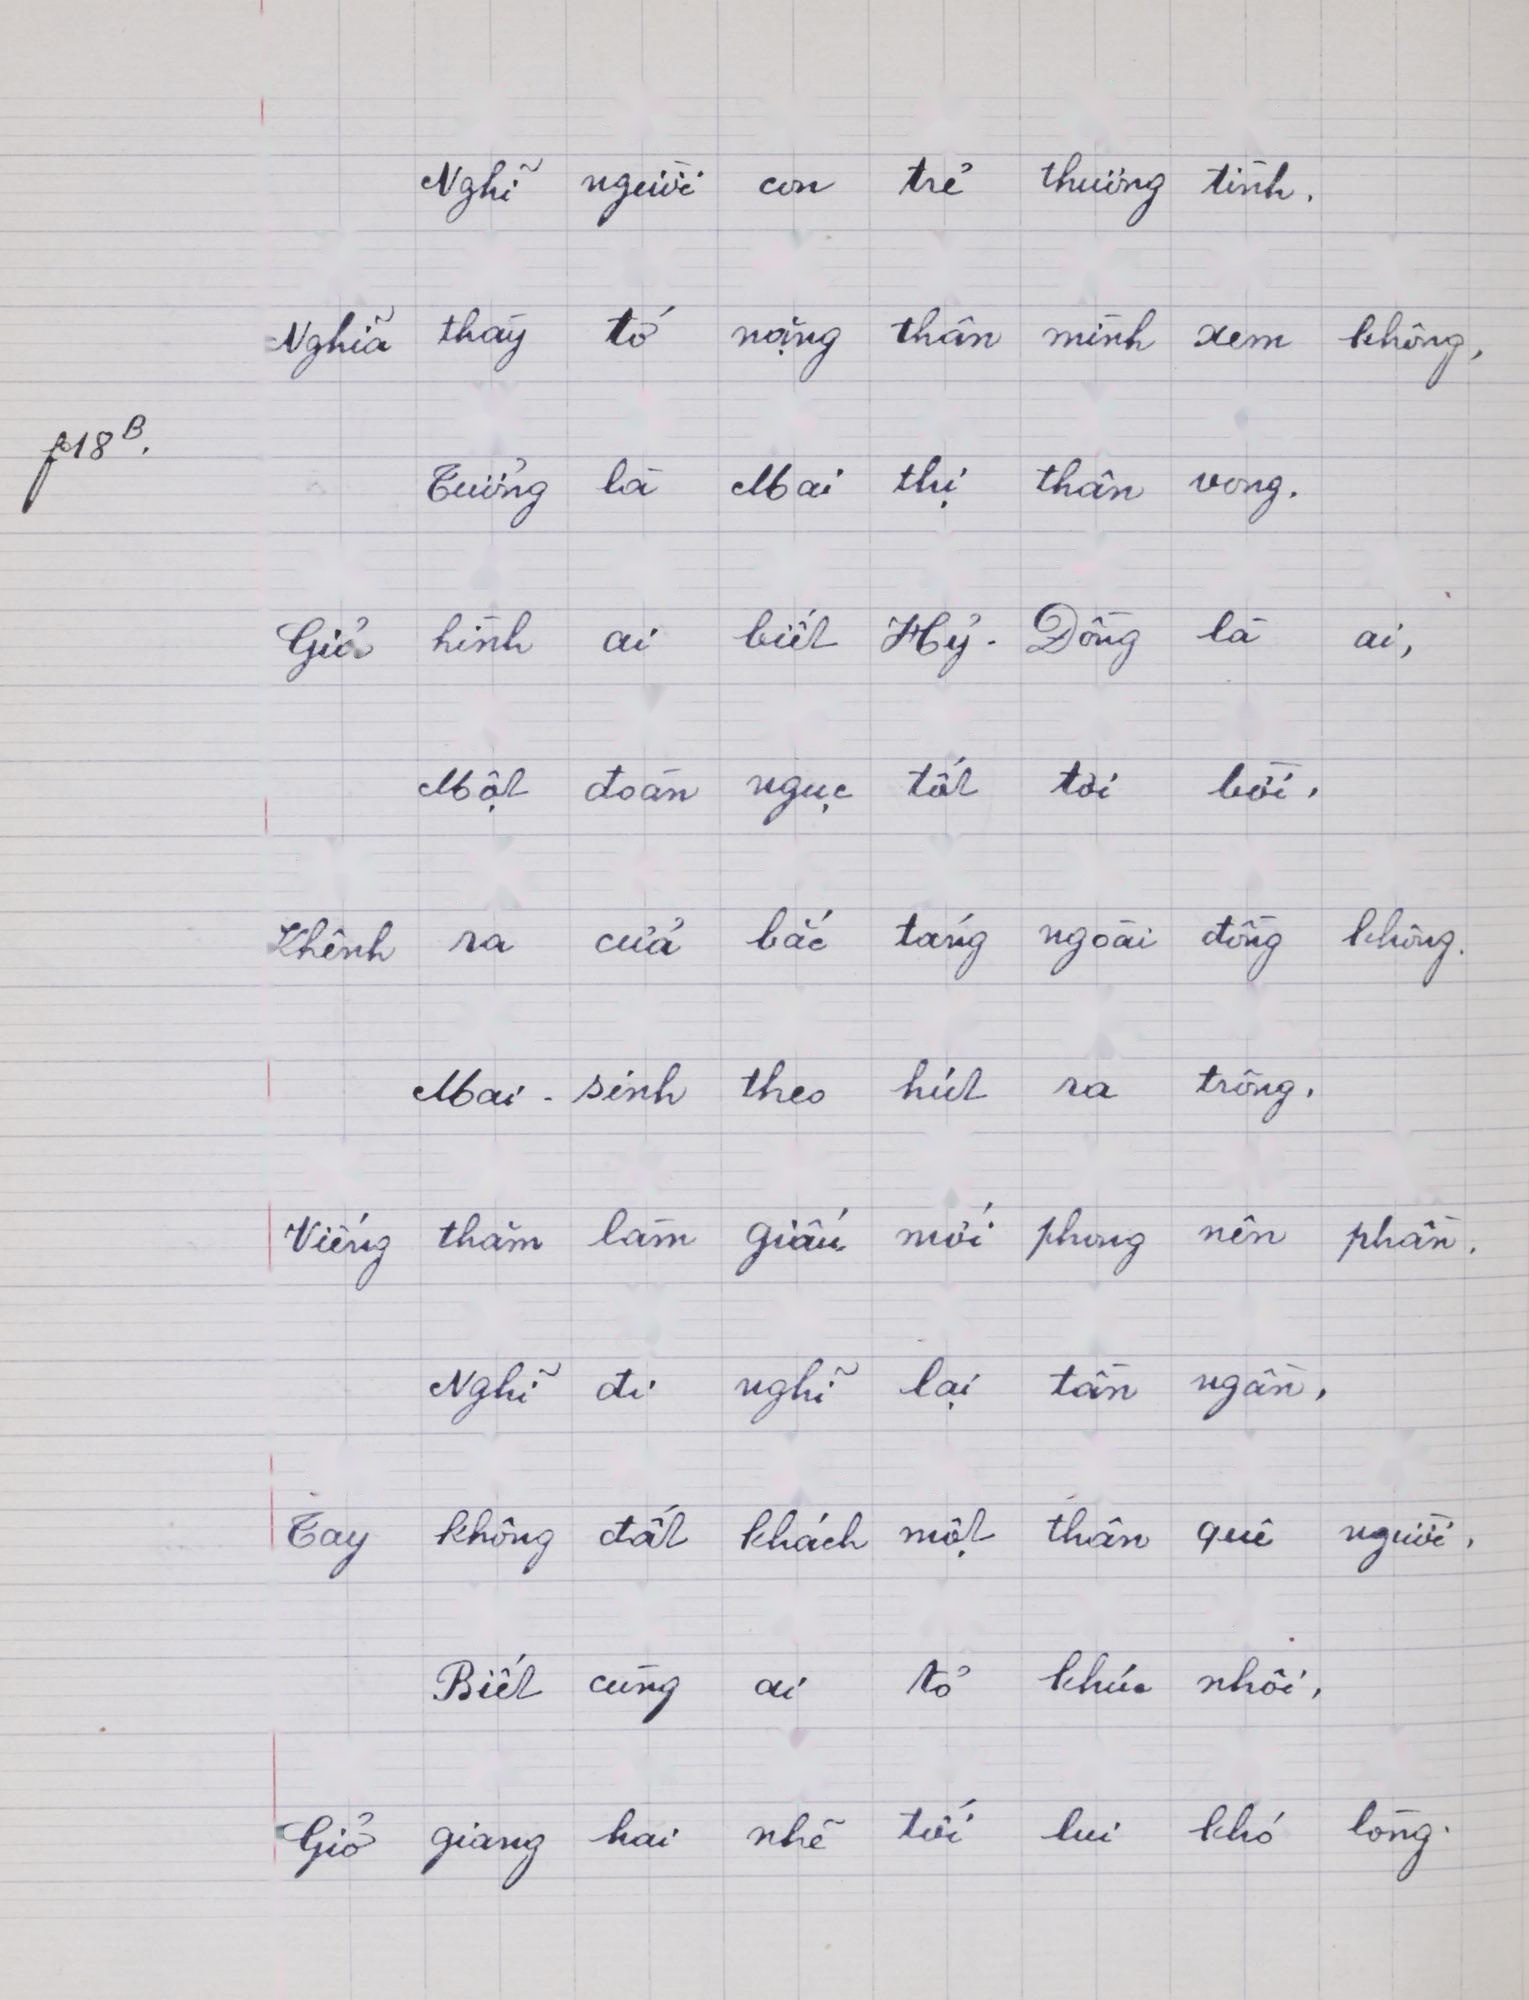 Nghĩ người con trẻ thương tình.
Nghĩa thày tớ nặng thân mình xem không,
p18B.
Tưởng là Mai thị thân vong.
Giả hình ai biết Hỷ-Đồng là ai,
Một đoàn ngục tốt tời bời,
Khênh ra cửa bắc táng ngoài đồng không.
Mai-sinh theo hút ra trông,
Viếng thăm làm giấu mới phong nên phần.
Nghĩ đi nghĩ lại tần ngần,
Tay không đất khách một thân quê người,
Biết cùng ai tỏ khúc nhôi,
Giở giang hai nhẽ tới lui khó lòng.